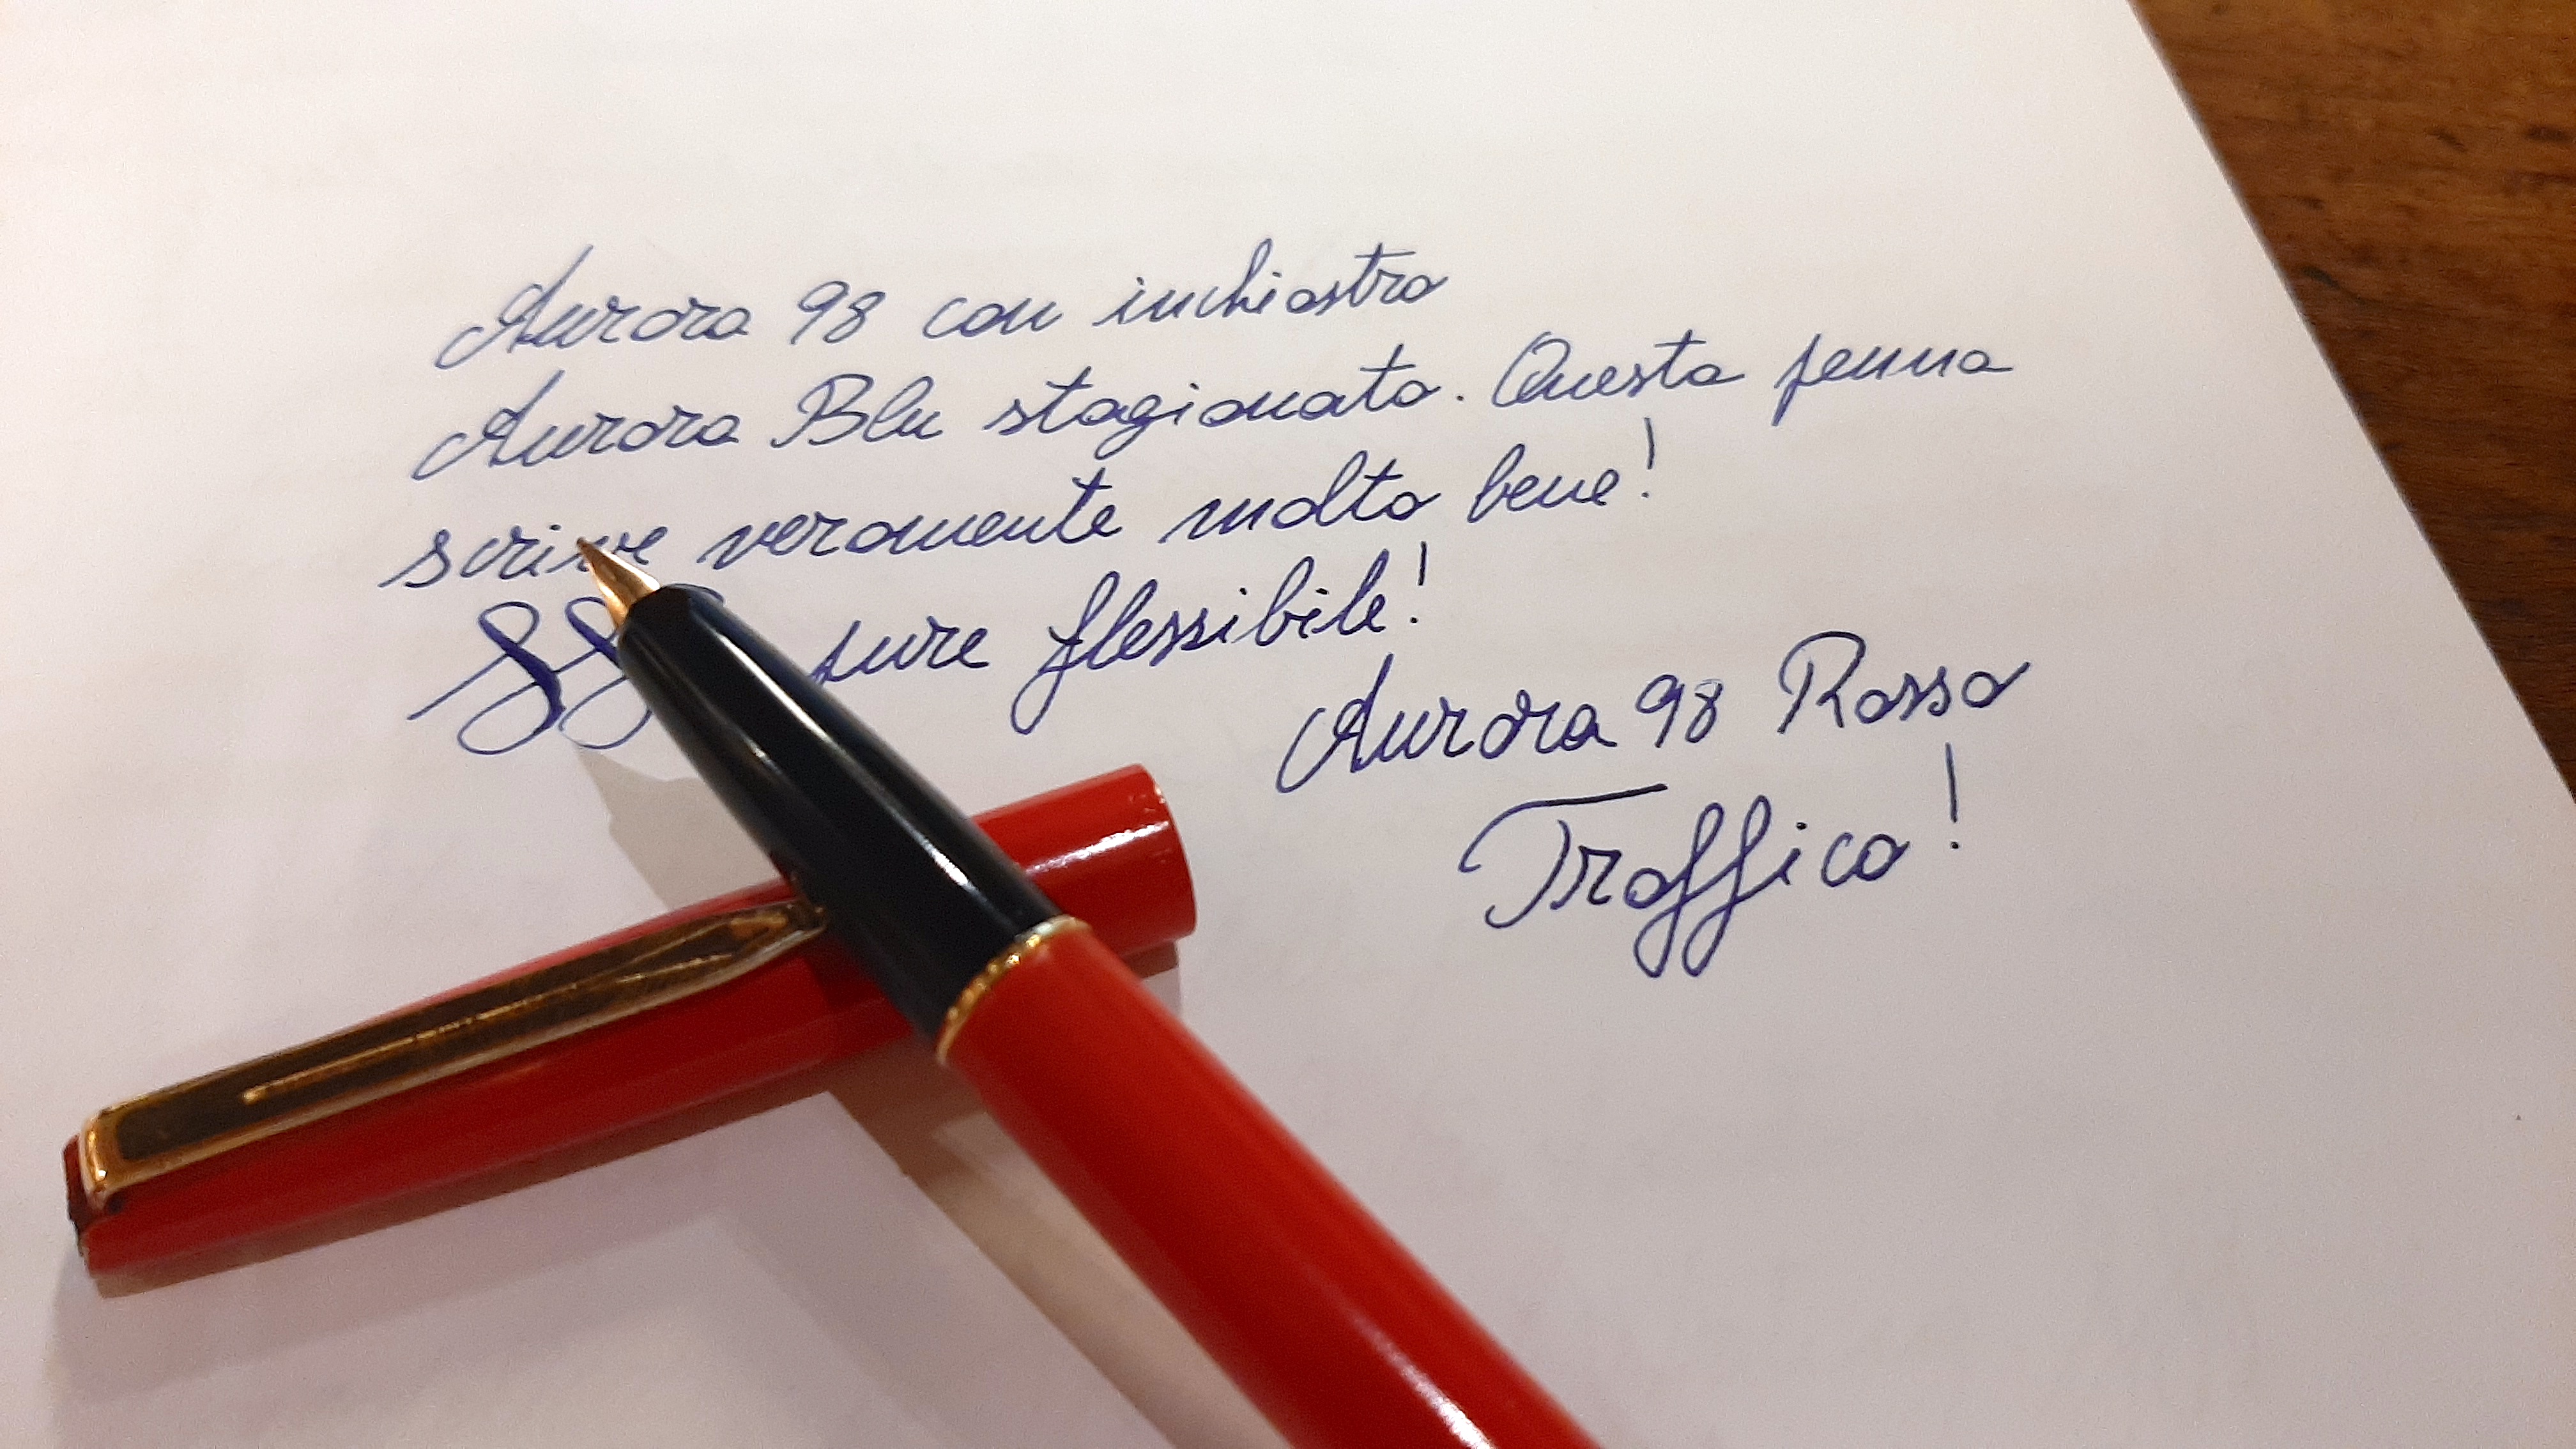 Aurora 98 con inchiostro
Aurora Blu stagionato. Questa penna
scrive veramente molto bene!
pure flessibile!
Aurora 98 Rosso
Traffico!